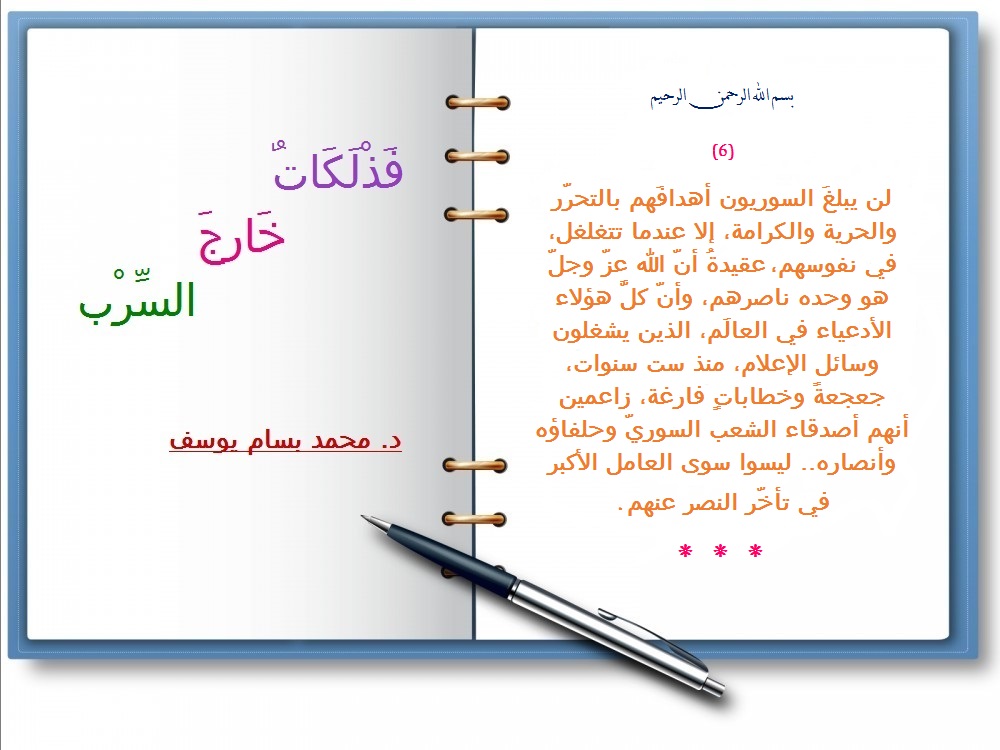 بسم الله الرحمن الرحيم
(6)
لن يبلغَ السوريون أهدافَهم بالتحرّر
والحرية والكرامة، إلا عندما تتغلغل،
في نفوسهم، عقيدةُ أنّ الله عزّ وجلّ
هو وحده ناصرهم، وأنّ كلَّ هؤلاء
الأدعياء في العالَم، الذين يشغلون
وسائل الإعلام، منذ ست سنوات،
جعجعةً وخطاباتٍ فارغة، زاعمين
أنهم أصدقاء الشعب السوريّ وحلفاؤه
وأنصاره.. ليسوا سوى العامل الأكبر
في تأخّر النصر عنهم.
* * *
فَذْلَكَاتٌ
خَارِجَ
السِّرْب
د. محمد بسام يوسف